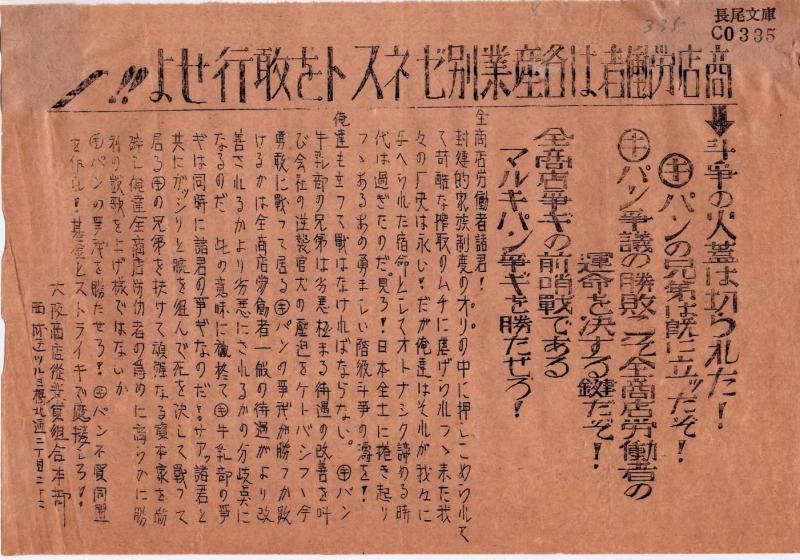 長尾文庫
C0335
335
商店労働者は各産業別ゼネストを敢行せよ!!
斗争の火蓋は切られた!
㋖パンの兄弟は既に立ッたぞ!
㋖パン争議の勝敗こそ全商店労働者の
運命を決する鍵だぞ!
全商店争ギの前哨戦である
マルキパン争ギを勝たせろ!
全商店労働者諸君!
封建的家族制度のオリの中に押しこめられて
て苛酷な搾取のムチに虐げられつゝ来た我
々の厂史は永い!だが俺達はそれが我々に
与へられた宿命としてオトナシク諦める時
代は過ぎたのだ。見ろ!日本全土に捲き起り
つゝあるあの勇ましい階級斗争の濤を!
俺達も立って戦はなければならない。㋖パン
牛乳部の兄弟は劣悪極まる待遇の改善を叫
び会社の逆襲官犬の圧迫をケトバシつゝ今
勇敢に戦って居る㋖パンの争ギが勝つか敗
けるかは全商店労働者一般の待遇がより改
善されるかより劣悪にされるかの分岐点に
なるのだ 此の意味に於て㋖牛乳部の争
ギは同時に諸君の争ギなのだ!サアッ諸君と
共にガッシリと腕を組んで死を決して戦って
居る㋖の兄弟を扶けて頑強なる資本家を粉
砕し俺達全商店労働者の為めに高らかに勝
利の凱歌を上げ様ではないか
㋖パンの争ギを勝たせろ!㋖パン不買同盟
を作れ!基金とストライキで応援しろ!
大阪商店従業員組合本部
西成区ツル見橋北通二丁目二十二